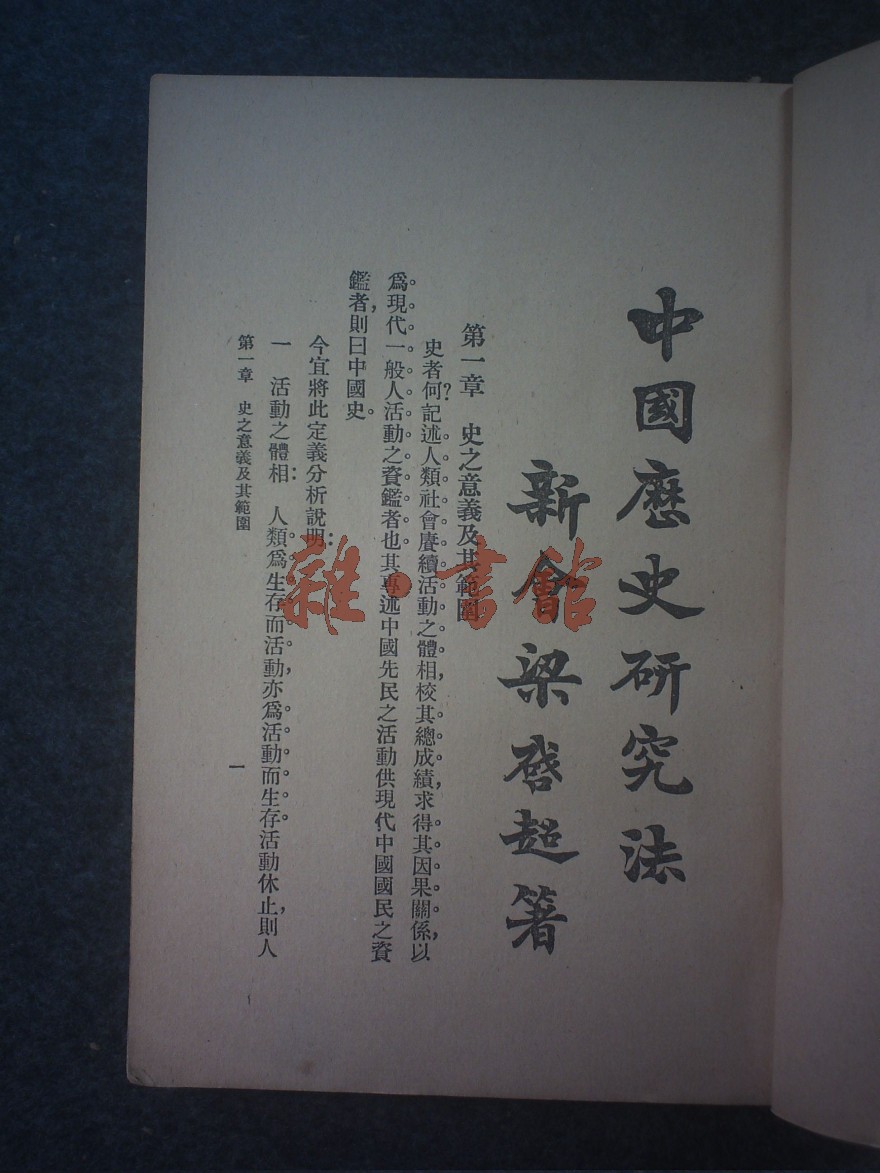 中國歷史研究法
新會梁啓超著
第一章　史之意義及其範圍
史者何?記述人類社會賡續活動之體相,校其總成績,求得其因果關係,以
爲現代一般人活動之資鑑者也其專述中國先民之活動供現代中國國民之資
鑑者,則曰中國史。
今宜將此定義分析說明:
一　活動之體相:　人類爲生存而活動,亦爲活動而生存活動休止,則人
第一章　史之意義及其範圍
一
雜·書館